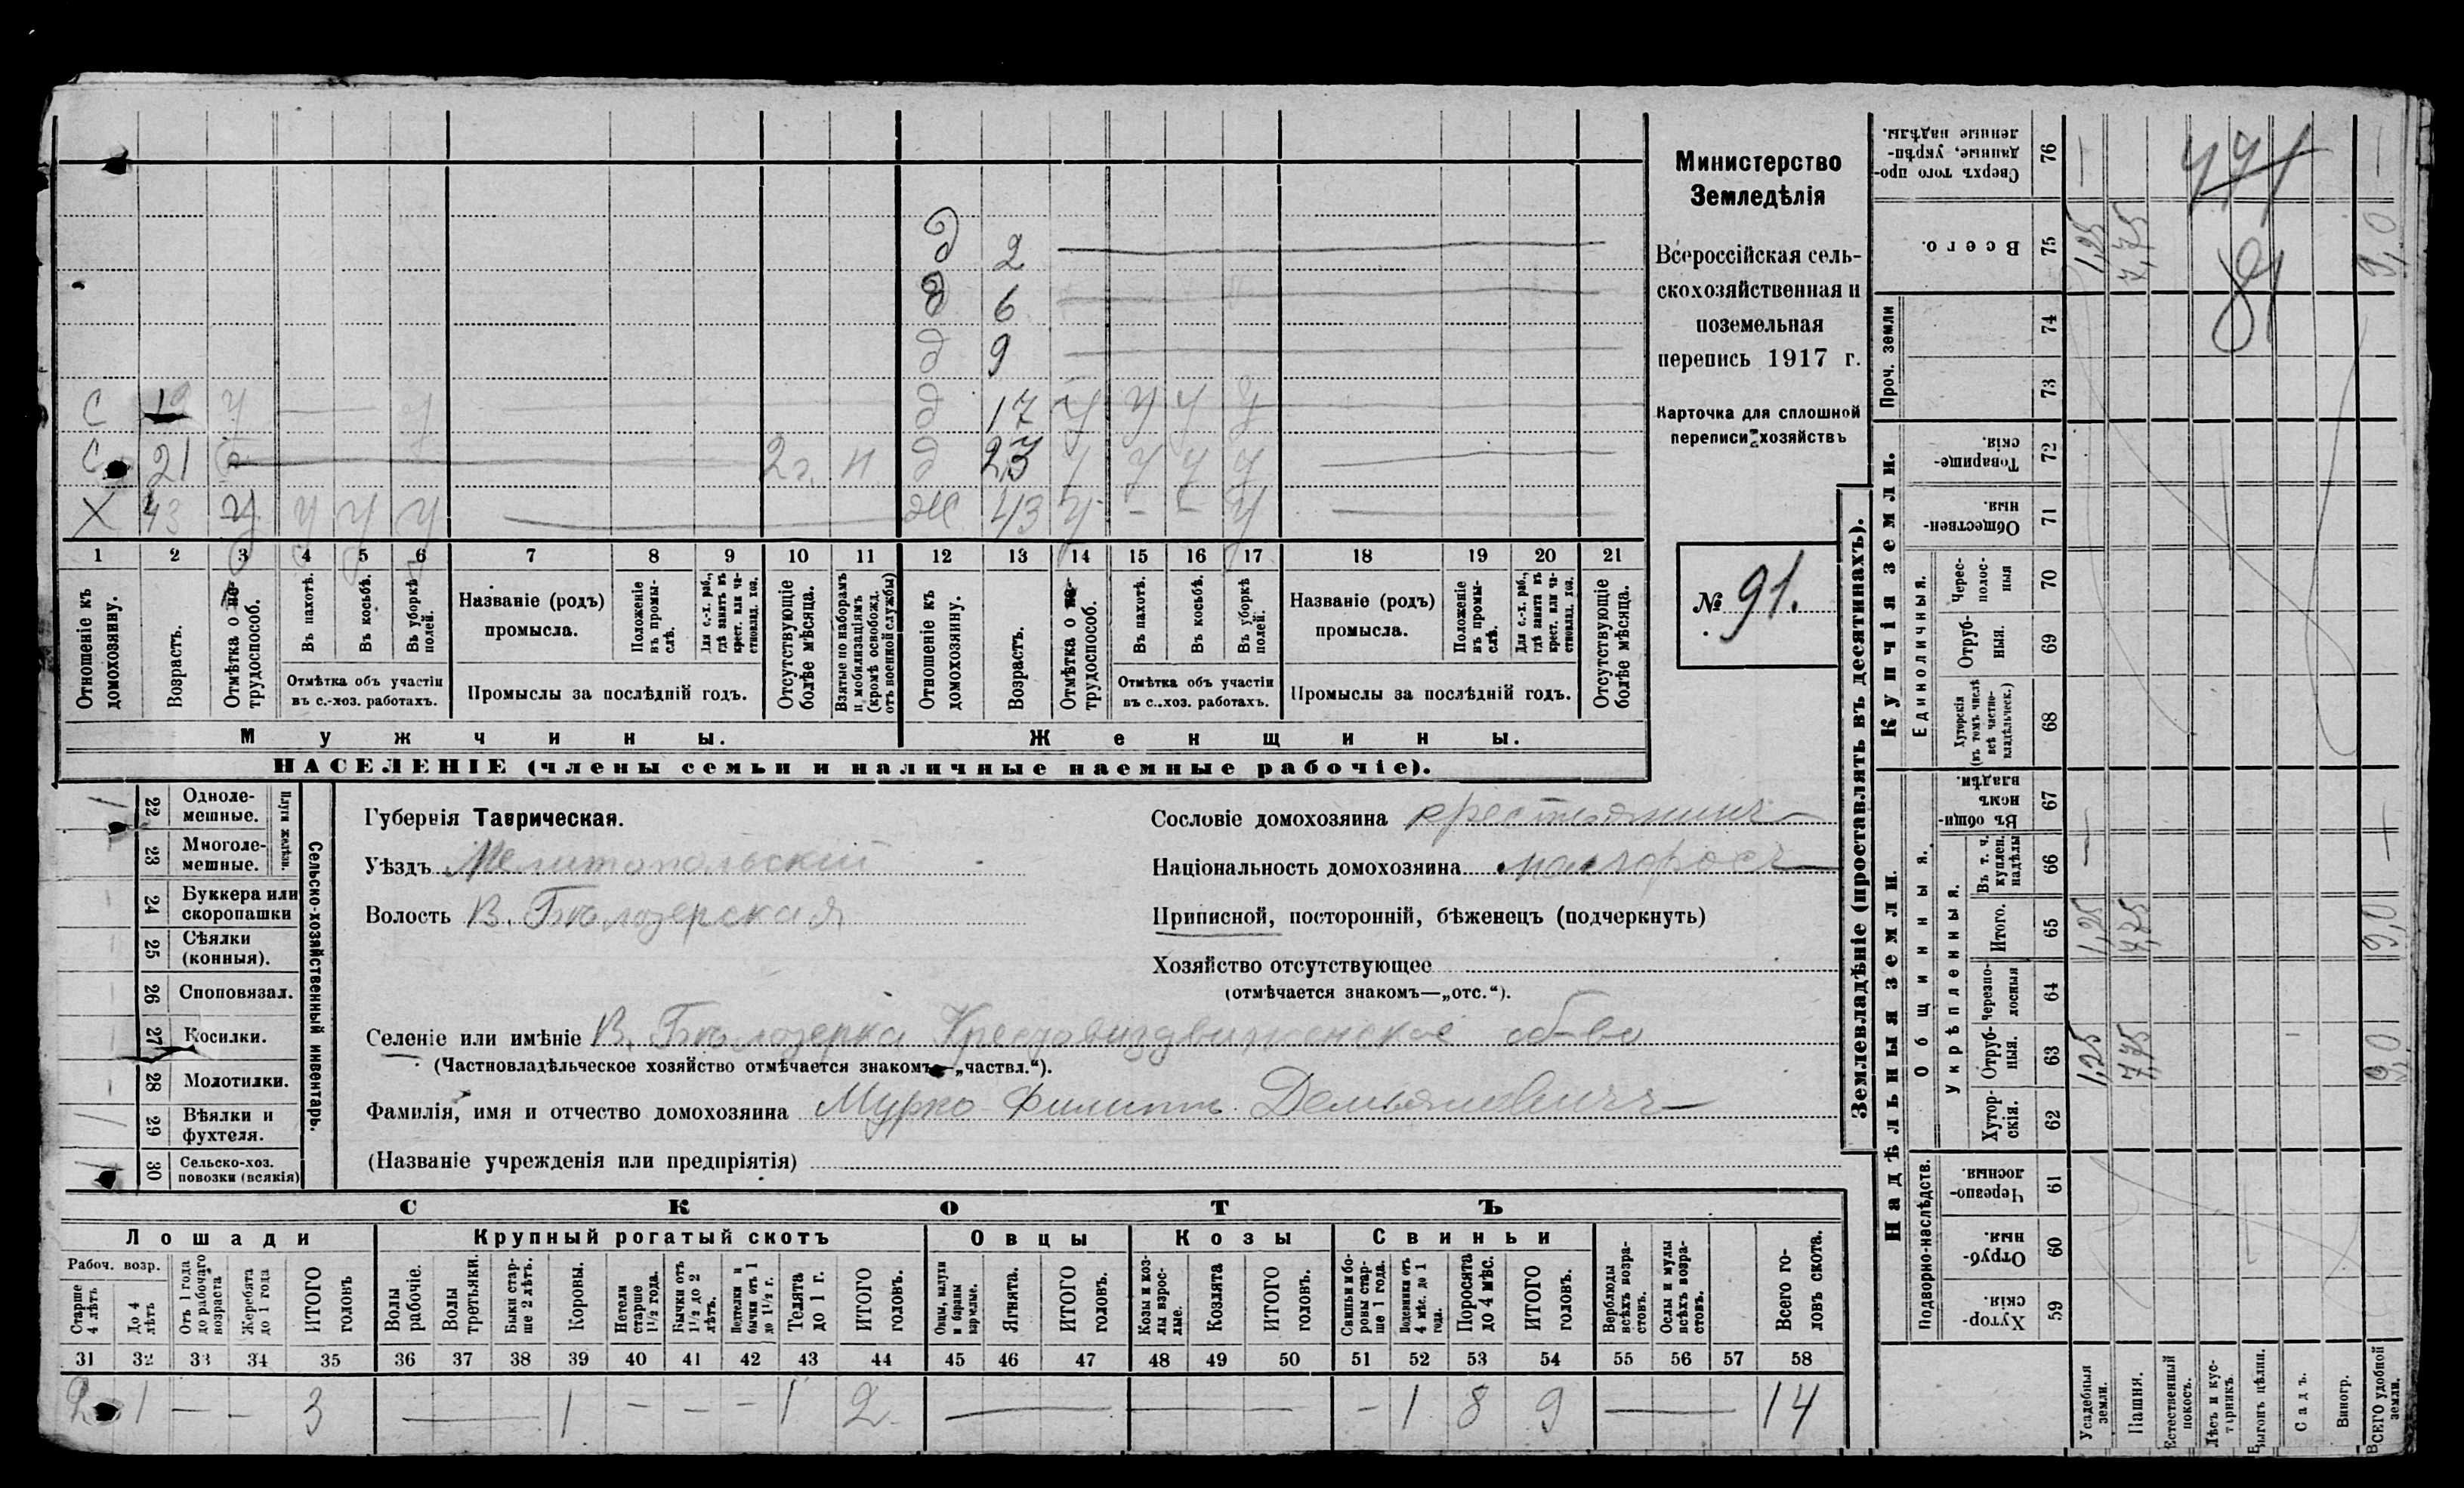 Министерство
Земледѣлія
Всероссійская сель-
скохозяйственная и
поземельная
перепись 1917 г.
Карточка для сплошной
переписи хозяйствъ
№ 91.
д 2
д 6
д 9
С 19 у — у д 17 у у у у
С 21 2 г. н д 23 у у у у
Х 43 у у у у — ж 43 у - - у —
1 2 3 4 5 6 7 8 9 10 11 12 13 14 15 16 17 18 19 20 21
Отношеніе къ домохозяину.
Возрастъ.
Отмѣтка о не- трудоспособ.
Въ пахотѣ.
Въ косьбѣ.
Въ уборкѣ полей.
Отмѣтка объ участіи
въ с.-хоз. работахъ.
Названіе (родъ)
промысла.
Положеніе въ промы- слѣ.
Для с.-х. раб., гдѣ занятъ въ крест. или ча- стновлад. хоз.
Промыслы за послѣдній годъ.
Отсутствующіе болѣе мѣсяца.
Взятые по наборамъ и мобилизаціямъ (кромѣ освобожд. отъ военной службы)
Отношеніе къ домохозяину.
Возрастъ.
Отмѣтка о не- трудоспособ.
Въ пахотѣ.
Въ косьбѣ.
Въ уборкѣ полей.
Отмѣтка объ участіи
въ с..хоз. работахъ.
Названіе (родъ)
промысла.
Положеніе въ промы- слѣ.
Для с.-х. раб., гдѣ занята въ крест. или ча- стновлад. хоз.
Промыслы за послѣдній годъ.
Отсутствующіе болѣе мѣсяца.
Мужчины. Женщины.
НАСЕЛЕНІЕ (члены семьи и наличные наемные рабочіе).
Сельско-хозяйственный инвентарь.
Плуги желѣзн.
22 Одноле- мешные. 1
23 Многоле- мешные.
24 Буккера или скоропашки
25 Сѣялки (конныя).
26 Споповязал.
27 Косилки.
28 Молотилки.
29 Вѣялки и фухтеля.
30 Сельско-хоз. повозки (всякія)
Губернія Таврическая.
Уѣздъ Мелитопольскій
Волость В. Бѣлозерская
Сословіе домохозяина крестьянинъ
Національность домохозяина малороссъ
Приписной, посторонній, бѣженецъ (подчеркнуть)
Хозяйство отсутствующее
(отмѣчается знакомъ—„отс.“).
Селеніе или имѣніе В. Бѣлозерка Крестовоздвиженское об-во
(Частновладѣльческое хозяйство отмѣчается знакомъ—„частвл.“).
Фамилія, имя и отчество домохозяина Мурко Филиппъ Демьяновичъ
(Названіе учрежденія или предпріятія)
СКОТЪ
Лошади Крупный рогатый скотъ Овцы Козы Свиньи
Рабоч. возр.
Старше 4 лѣтъ
До 4 лѣтъ
Отъ 1 года до рабочаго возраста
Жеребята до 1 года
ИТОГО головъ
Волы рабочіе.
Волы третьяки.
Быки стар- ше 2 лѣтъ.
Коровы.
Нетели старше 1½ года.
Бычки отъ 1½ до 2 лѣтъ.
Подтелки и бычки отъ 1 до 1½ г.
Телята до 1 г.
ИТОГО головъ.
Овцы, валухи и бараны взрослые.
Ягнята.
ИТОГО головъ.
Козы и коз- лы взрос- лые.
Козлята
ИТОГО головъ.
Свиньи и бо- ровы стар- ше 1 года.
Подсвинки отъ 4 мѣс. до 1 года.
Поросята до 4 мѣс.
ИТОГО головъ.
Верблюды всѣхъ возра- стовъ.
Ослы и мулы всѣхъ возра- стовъ.
Всего го- ловъ скота.
31 32 33 34 35 36 37 38 39 40 41 42 43 44 45 46 47 48 49 50 51 52 53 54 55 56 57 58
2 1 — — 3 — 1 - - - 1 2 — — - 1 8 9 — 14
Землевладѣніе (проставлять въ десятинахъ).
Купчія земли.
Надѣльныя земли.
Проч. земли
Единоличныя.
Общинныя.
Укрѣпленныя.
Подворно-наслѣдств.
76 Сверхъ того про- данные, укрѣп- ленные надѣлы. — —
75 Всего. 1,25 7,75 9,0
74
73
72 Товарище- скія.
71 Обществен- ныя.
70 Черес- полос- ныя
69 Отруб- ныя.
68 Хуторскія (въ томъ числѣ всѣ частно- владѣльческ.)
67 Въ общи- номъ владѣн.
66 Въ т. ч. куплен. надѣлы
65 Итого. 1,25 7,75 9,0
64 Черезпо- лосныя
63 Отруб- ныя. 1,25 7,75 9,0
62 Хутор- скія.
61 Черезпо- лосныя.
60 Отруб- ныя.
59 Хутор- скія.
Усадебныя земли.
Пашня.
Естественный покосъ.
Лѣсъ и кус- тарникъ.
Выгонъ цѣлин.
Садъ.
Виногр.
ВСЕГО удобной земли.